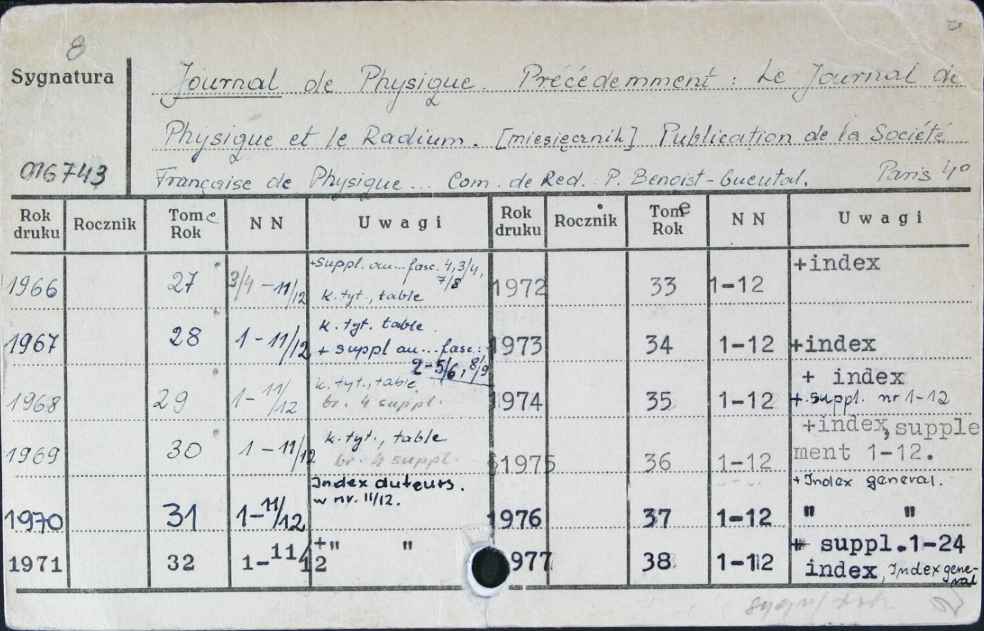 8
Sygnatura
Journal de Physique. Précédemment : Le Journal de
Physique et le Radium. [miesięcznik] Publication de la Société
016743
Française de Physique... Com. de Red. P. Benoist-Gueutal. Paris 4°
Rok druku Rocznik Tome Rok N N Uwagi Rok druku Rocznik Tome Rok N N Uwagi
1966 27 3/4 - 11/12 +suppl. au... fasc. 4, 3/4, 7/8 k. tyt., table 1972 33 1-12 +index
1967 28 1 - 11/12 k. tyt. table + suppl au... fasc.: 2-5/6, 8/9 1973 34 1-12 +index
1968 29 1- 11/12 k. tyt., table br. 4 suppl. 1974 35 1-12 + index + suppl. nr 1-12
1969 30 1 - 11/12 k. tyt., table br. 4 suppl. 1975 36 1-12 +index, supplement 1-12.
1970 31 1-11/12 Index auteurs. w nr. 11/12. 1976 37 1-12 + Index general. " "
1971 32 1-11/12 +" " 1977 38 1-12 + suppl.1-24 index, Index general